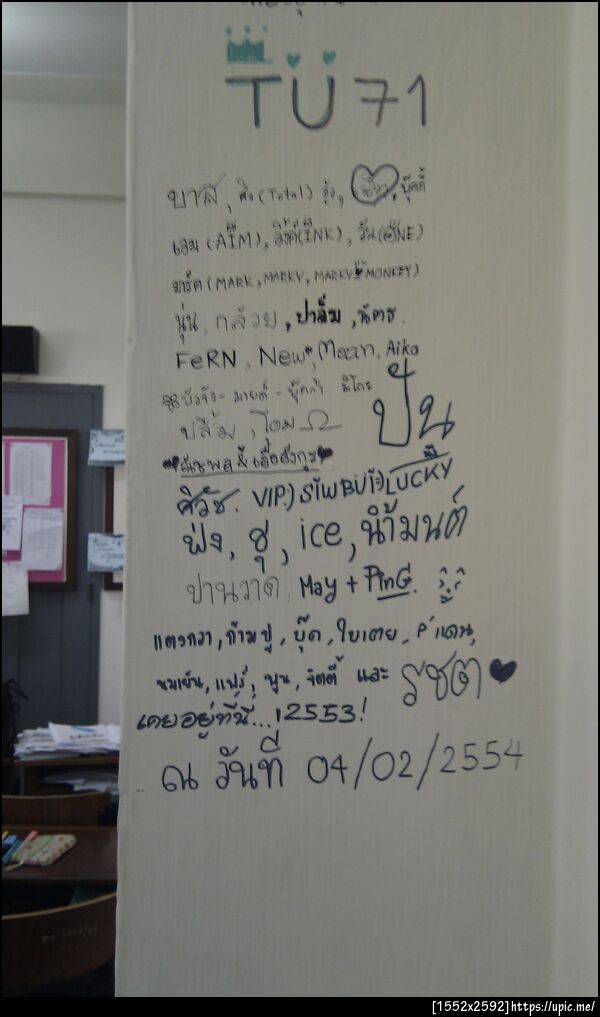 TU 71
บาส, คิว (Total)
เอม (AIM), อิ๊งค์ (INK), วัน (ONE)
มาร์ค (MARK, MARKY, MARKY MONKEY)
นุ่น, กล้วย, ปาล์ม, ฉัตร.
FeRN, New, Mean, Aiko
ปลื้ม, โอม
ปั้น
ศิวัช. VIP:) LUCKY
ฟ่ง, ชุ, ice, น้ำมนต์
ปานวาด, May + PinG.
แตงกวา, ก้ามปู, บุ๊ค, ใบเตย, P'แดน,
นมเย็น, แฟร์, พูน, จิตตี้ และ รชต
เคยอยู่ที่นี่...! 2553!
ณ วันที่ 04/02/2554
[1552x2592]https://upic.me/